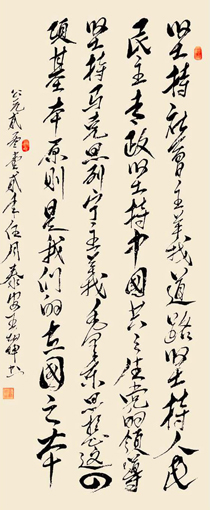 坚持社會主義道路坚持人民
民主专政坚持中国共产党的领導
坚持马克思列宁主義毛泽东思想这四
项基本原则是我们的立国之本
公元贰零壹贰年伍月泰安